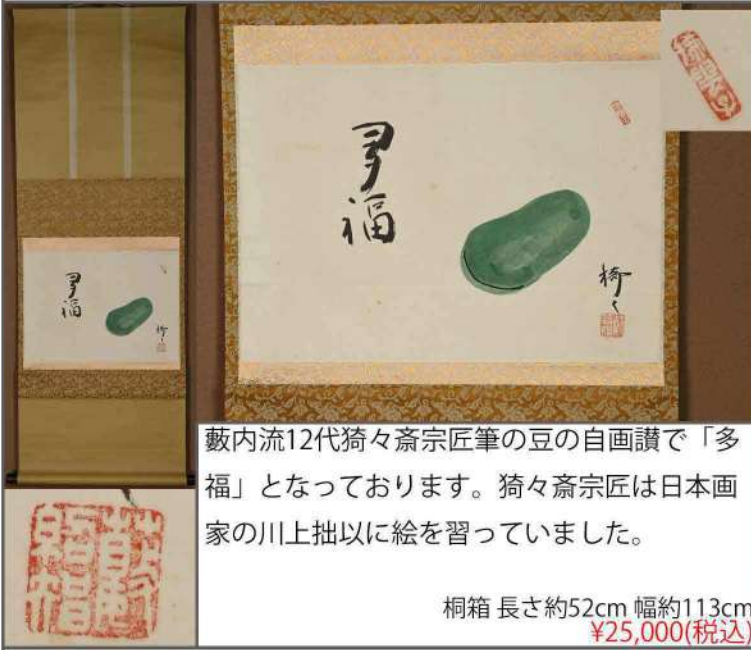 多福
猗々
多福
猗々
藪内流12代猗々斎宗匠筆の豆の自画讃で「多
福」となっております。猗々斎宗匠は日本画
家の川上拙以に絵を習っていました。
桐箱 長さ約52cm 幅約113cm
¥25,000(税込)